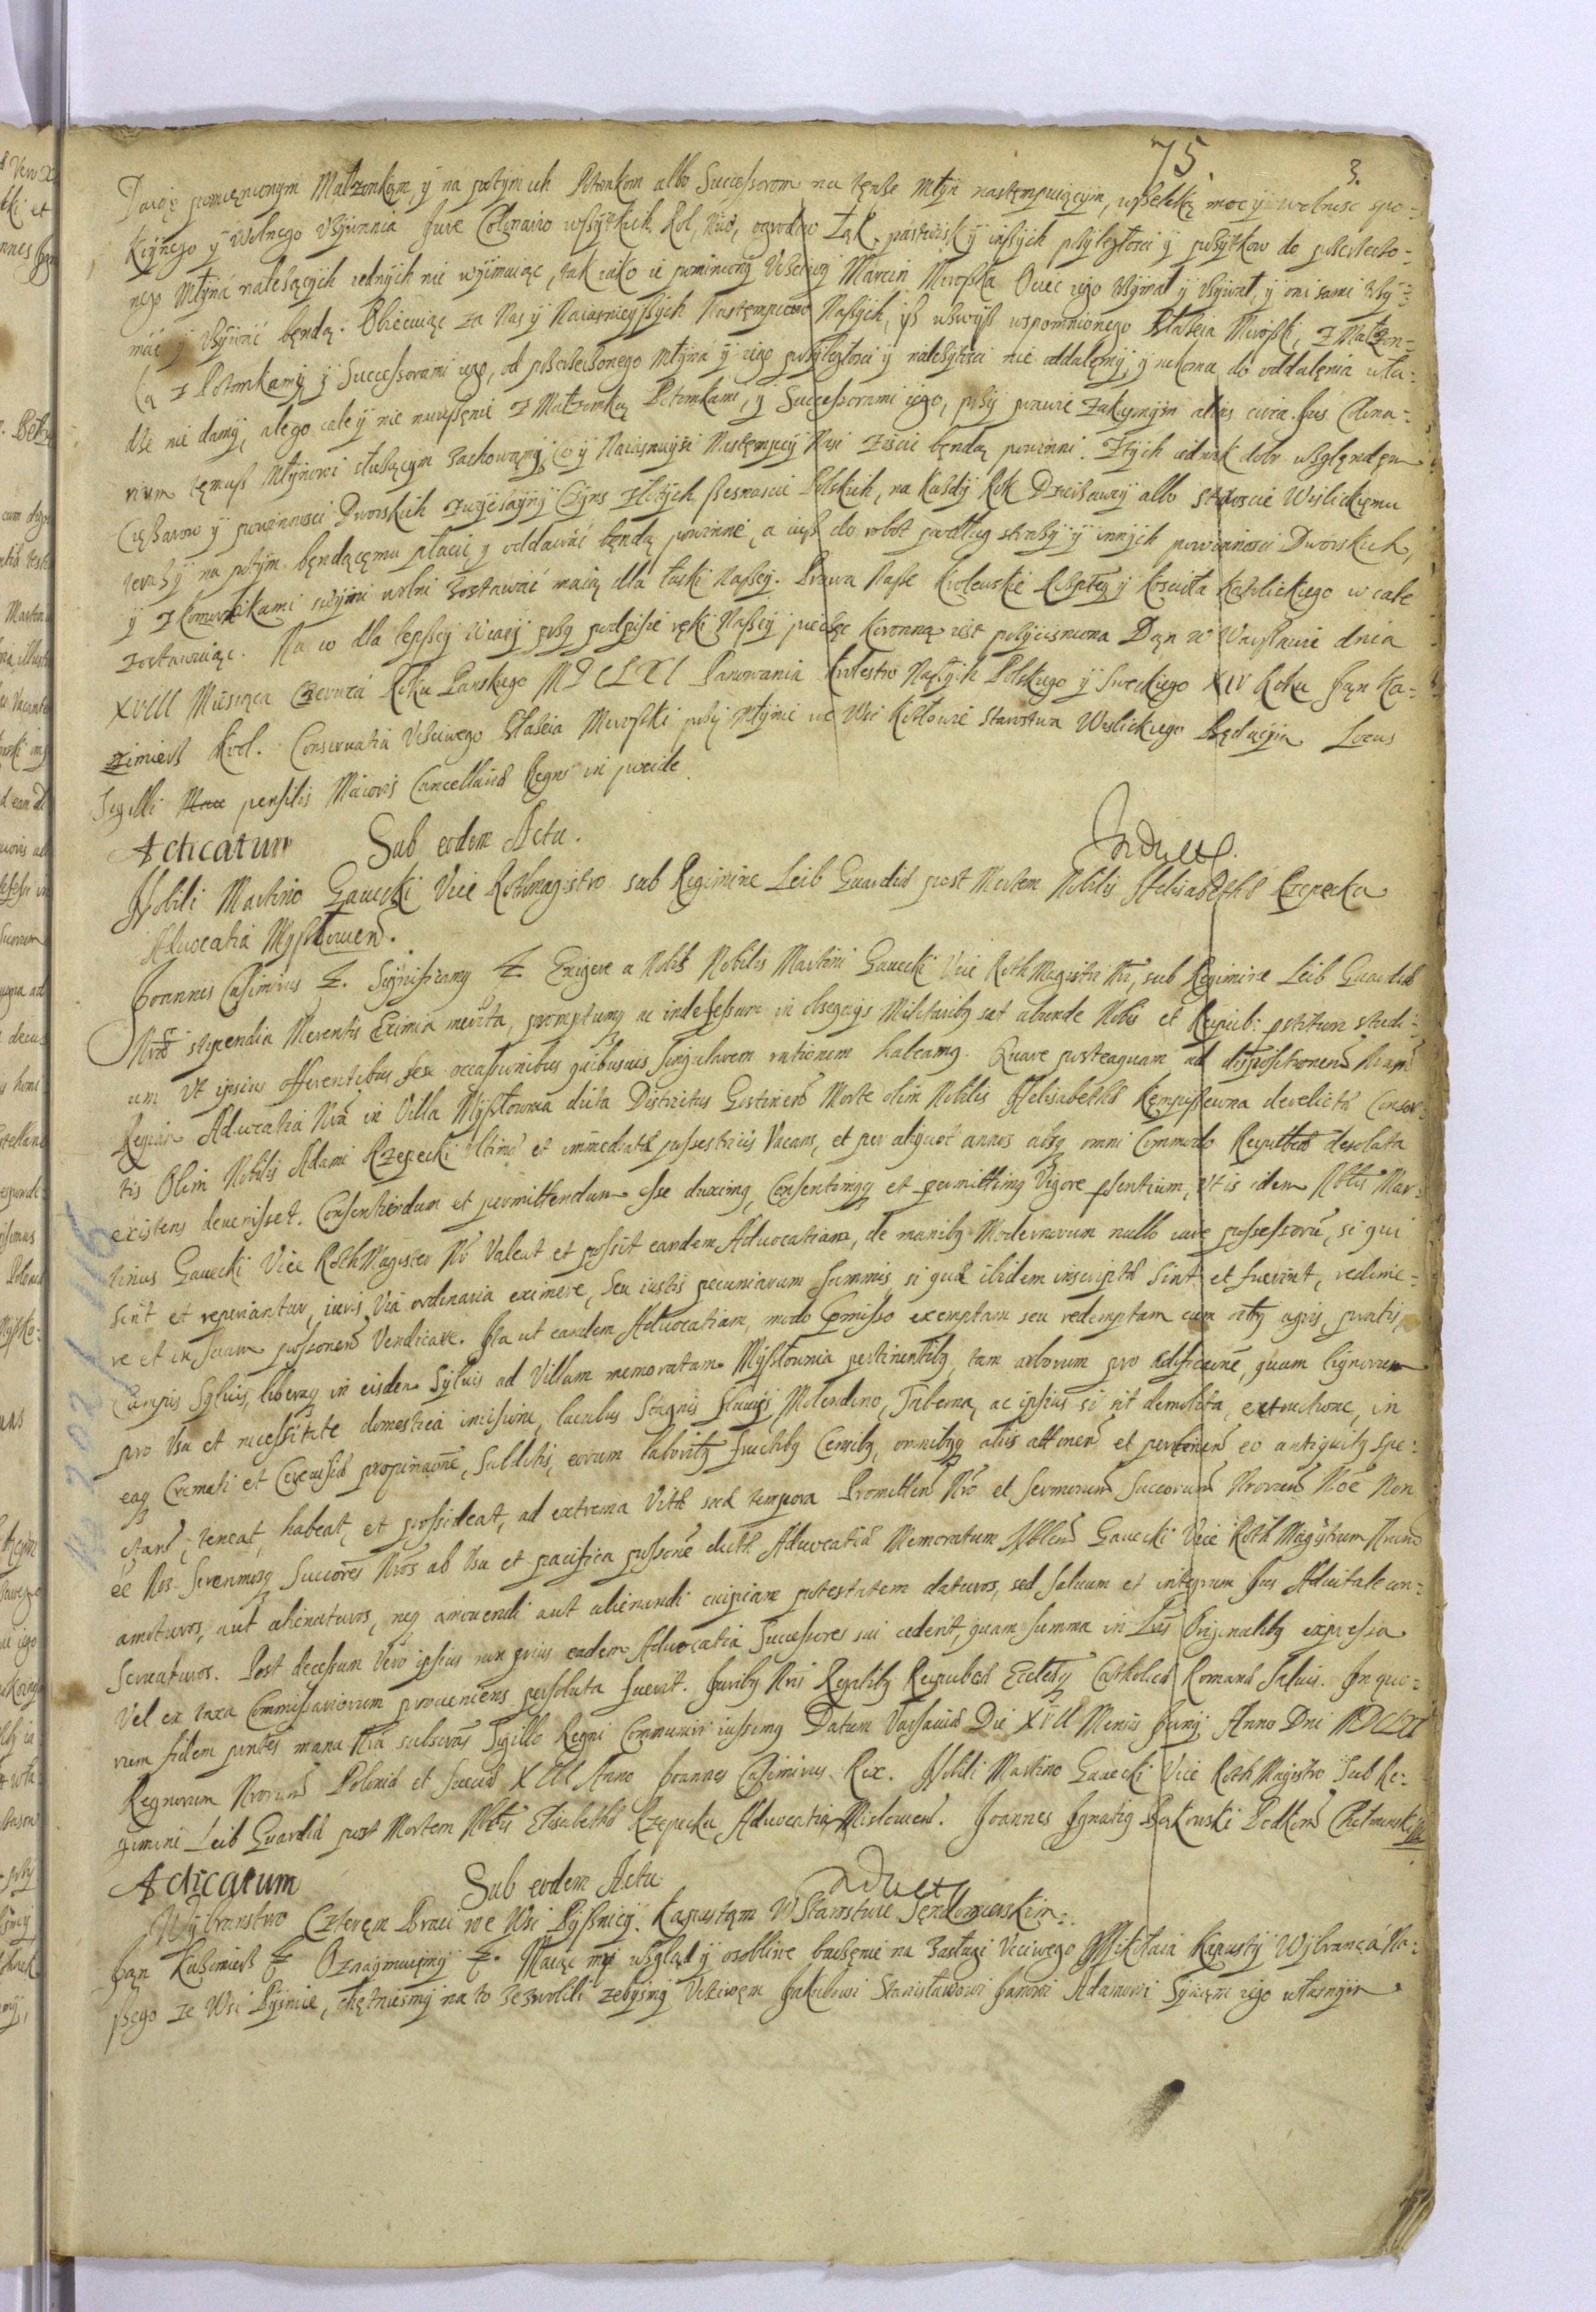 75. 3.
Daiąc pomienionym Małzonkom, ÿ na potym ich Potomkom albo Successorom na tęnże Młÿn następuiącÿm, wszelaką moc ÿ wolnosc spo-
koÿnego ÿ Wolnego Vżÿwania Jure Colonario wszÿtkich Rol, Niw, ogrodow Łąk, pastwisk ÿ inszÿch przÿległosci ÿ pożÿtkow do
nego Młÿná należących żednÿch nie wÿimuiąc, tak iáko ie pomieniony Vczciwÿ Marcin Mroszka Ociec iego trzÿmał ÿ vżÿwał, ÿ oni sami trzÿ-
mac ÿ vżÿwać będą. Obiecuiąc za Nas ÿ Naiasnieÿszÿch Następcow Naszÿch, ÿż wżwÿż wspomnionego Błażeia Mroszki, z Małżon-
ką z Potomkamÿ ÿ Successorami iego, od Młÿná ÿ iego przÿległosci ÿ należÿtosci nie oddalęmÿ, ÿ nikomu do oddalęnia wła-
dze nie damÿ, ale go cale ÿ nie naruszęnie z Małzonką Potomkami, ÿ Successorami iego, przÿ prawie zakupnÿm alias circa Jus Colona-
rium tęmuż Młÿnowi służącym zachowamÿ, Co ÿ Naiasnieÿsi Następcÿ Nasi ziscic będą powinni. Ztÿch iednak dobr wsględęm
Ciężarow ÿ powinnosci Dworskich zwÿczaÿnÿ Czÿns złotÿch szesnascie Polskich, na każdy Rok Dzierżawcÿ albo Staroscie Wislickięmu
teraz ÿ na potÿm będącęmu płacić ÿ oddawáć będą powinni, a iuż do robot podług straży ÿ innÿch powinnosci Dworskich,
ÿ z komornikami swÿmi wolni zostawać maią dla łaski Naszeÿ. Prawa Nasze Krolewskie Rzpltey ÿ Koscioła Katolickiego w cale
zostawuiąc. Na co dla lepszeÿ wiarÿ przÿ podpisie ręki Naszeÿ pieczęc Koronną iest przÿcisniona Dąn w Warszawie dnia
XVIII Miesiąca Czerwcá Roku Panskiego MDCLXI Panowania Krolestw Naszÿch Polskiego ÿ Sweckiego XIV Roku Ján Ka-
zimierz Krol. Conservatia Vczciwego Błażeia Mroszki przÿ Młÿnie we Wsi Kotłowie Starostwa Wislickiego Będącÿm Locus
Sigilli Mae pensilis Maioris Cancellariæ Regni in pixide
Acticatum Sub eodem Actu. Indult.
Nobili Martino Gawecki Vice Rothmagistro sub Regimine Leib Guardiæ post Mortem Nobilis Helisabethæ Rzepecka
Advocatia Mysłowen.
Joannes Casimirus &. Significamq &. Exigere a Nobis Nobilis Martini Gawecki Vice RothMagistri Nri, sub Regimine Leib Guardiæ
Nræ stipendia Merentis Eximia merita, promptumq ac indefessum in obsequijs Militaribq sat abunde Nobis et Reipub: pstitum studi-
um Vt ipsius offerentibus sese occasionibus quibusvis singularem rationem habeamq. Quare posteaquam ad dispositionem Nram
Regiam Advocatia Nra in Villa Mysłownia dicta Districtus Gostinen Morte olim Nobilis Helisabethæ Kempistewna derelictæ Consor-
tis Olim Nobilis Adami Rzepecki Vltimæ et immediatæ possestricis Vacans, et per aliquot annos absq omni Commodo Reipublicæ desolata
existens devenisset. Consentiendum et permittendum esse duximq, Consentimqq et permittimq Vigore psentium, Vt is idem Nblis Mar-
tinus Gawecki Vice RothMagister Nr Valeat et possit eandem Advocatiam, de manibq Modernorum nullo iure possessorum, si qui
sint et reperiantur, iuris Via ordinaria eximere, seu iustis pecuniarum summis, si quæ ibidem inscriptæ sint et fuerint, redime-
re et in suam possonem Vendicare. Ita ut eandem Advocatiam, modo Pmisso exemptam seu redemptam cum oibq agris, pratis,
Campis Sylvis, liberaq in eisdem Sylvis ad Villam memoratam Mysłownia pertinentibq, tam arborum pro ædificatione, quam lignorum
pro Vsu et necessitate domestica incisione, lacubus Stagnis fluvijs Molendino, Taberna, ac ipsius si sit demolita, extructione, in
eaq Cremati et Cerevisiæ propinatione, Subditis, eorum laboribq fructibq Censibq, omnibqq aliis attinen et pertinen eo antiquitq spe-
ctan, teneat, habeat, et possideat, ad extrema Vitæ suæ tempora Promitten Nro et Sermorum Succorum Nrorum Noe Non
ee Nos Serenmosq Succores Nros ab Vsu et pacifica possone dictæ Advocatiæ Memoratum Nblem Gawecki Vice Roth Magistrum Nrum
amoturos, aut alienaturos, neq amovendi aut alienandi cuipiam potestatem daturos, sed salvum et integrum Jus Advitale con-
servaturos. Post decessum Vero ipsius non prius eadem Advocatia Successores sui cedent, quam summa in Lris Originalibq expressa
Vel ex taxa Commissariorum proveniens persoluta fuerit. Juribq Nris Regalibq Reipubcæ Ecclesiæq Catholicæ Romanæ salvis. In quo-
rum fidem pntes manu Nra subscras Sigillo Regni Communiri iussimq Datum Varsaviæ Die XVII Mensis Junij Anno Dni MDCLXI
Regnorum Nrorum Poloniæ et Sueciæ XIII Anno Joannes Casimirus Rex. Nobili Martino Gawecki Vice Roth Magistro Sub Re-
gimine Leib Guardiæ post Mortem Nblis Elisabethæ Rzepecka Advocatia Mislowen. Joannes Ignatiq Bąkowski Podkom Chełminski
Acticatum Sub eodem Actu Indult
Wÿbranstwo Czteręm Braci we Wsi Pÿsznicÿ. Kapustąm W Starostwie Sęndomierskim.
Ján Kazimierz & Oznaÿmuięmÿ &. Maiąc mÿ wzgląd ÿ osobliwe baczęnie na Zasługi Vcciwego Mikołaia Kapustÿ Wÿbrancá Na-
szego ze Wsi Pÿsnice, chętniesmÿ na to zezwolili zebÿsmÿ Vczciwęm Jakubowi Stanisławowi Janowi Adamowi Sÿnęm iego własnÿm